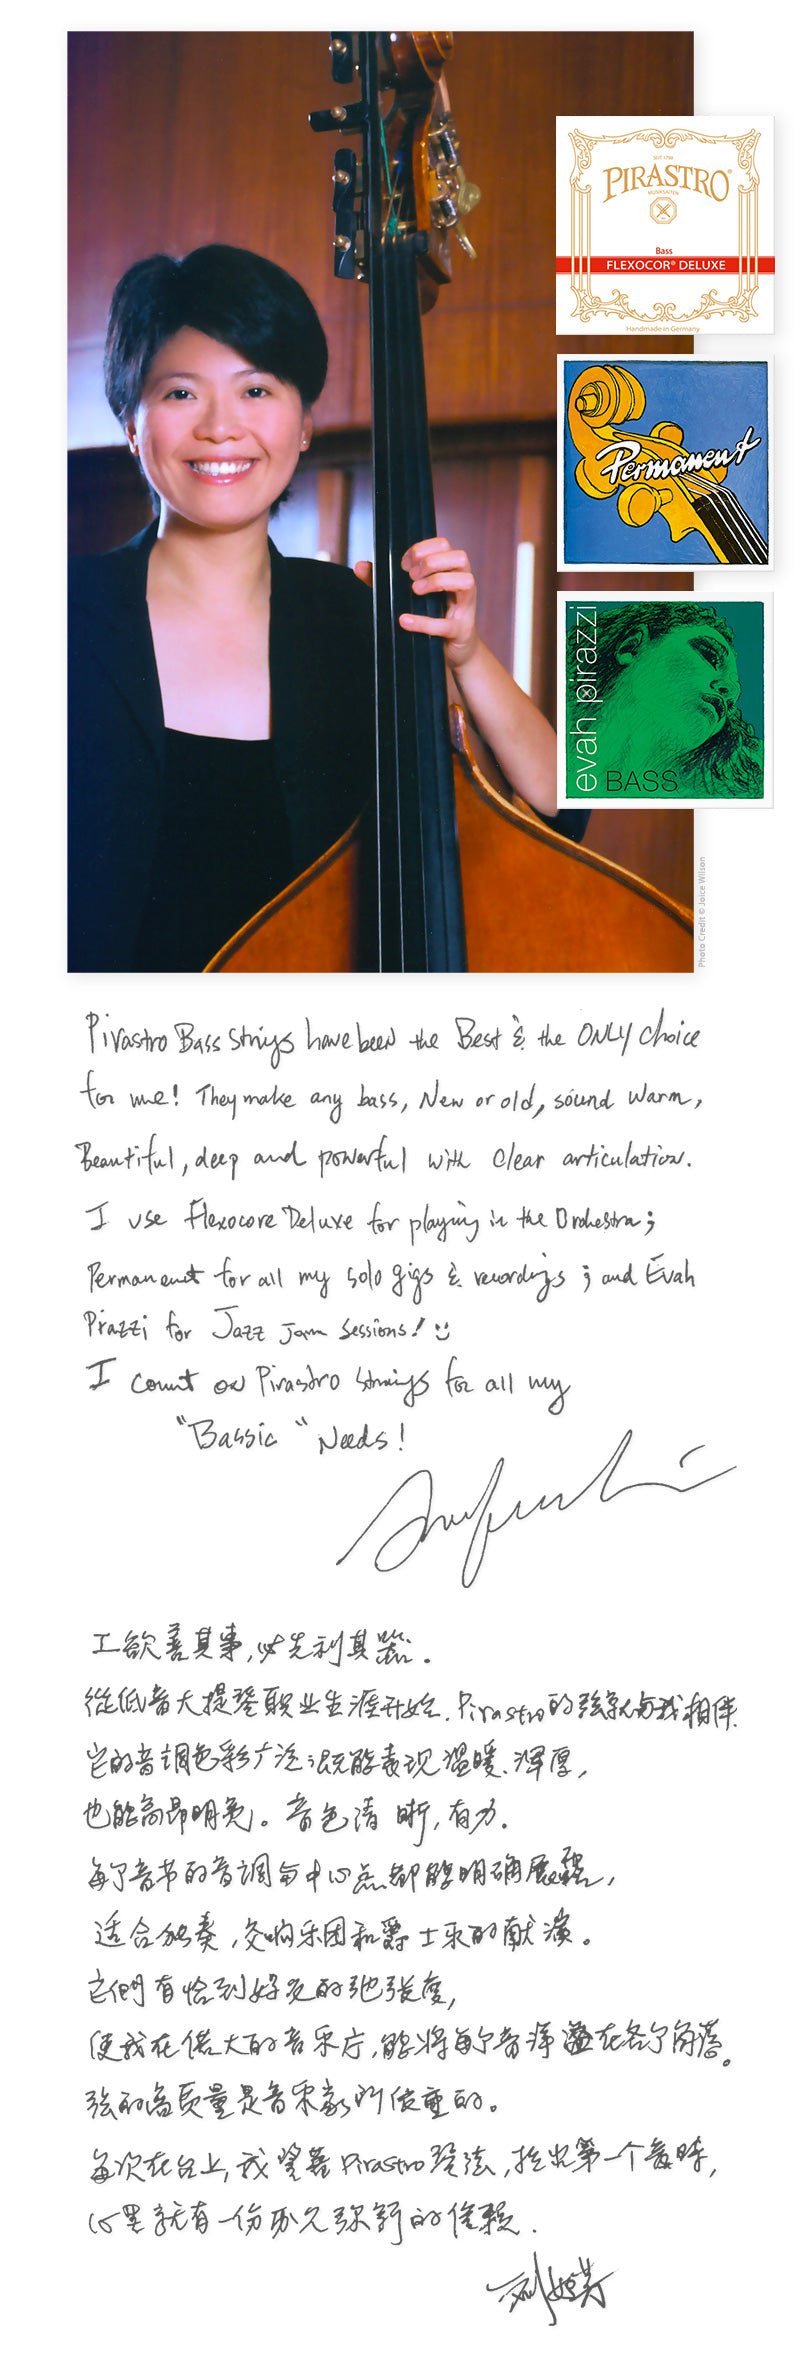 SEIT 1798
PIRASTRO®
MUSIKSAITEN
Bass
FLEXOCOR® DELUXE
Handmade in Germany
Permanent
evah pirazzi
BASS
Photo Credit © Joice Wilson
Pirastro Bass Strings have been the Best & the ONLY choice
for me! They make any bass, New or old, sound warm,
Beautiful, deep and powerful with clear articulation.
I use Flexocore Deluxe for playing in the Orchestra;
Permanent for all my solo gigs & recordings; and Evah
Pirazzi for Jazz Jam Sessions! :)
I count on Pirastro Strings for all my
"Bassic" Needs!
工欲善其事,必先利其器.
從低音大提琴职业生涯开始,Pirastro的弦就与我相伴.
它的音调色彩广泛 既能表现温暖、浑厚,
也能高昂明亮。音色清晰,有力.
每个音节的音调与中心点都能明确展露,
适合独奏,交响乐团和爵士乐的献演。
它們有恰到好处的弛张度,
使我在偌大的音乐厅,能将每个音浑溢在各个角落。
弦的高质量是音乐家所信重的。
每次在台上,我望着Pirastro琴弦,拉出第一个音時,
心里就有一份历久弥新的信赖.